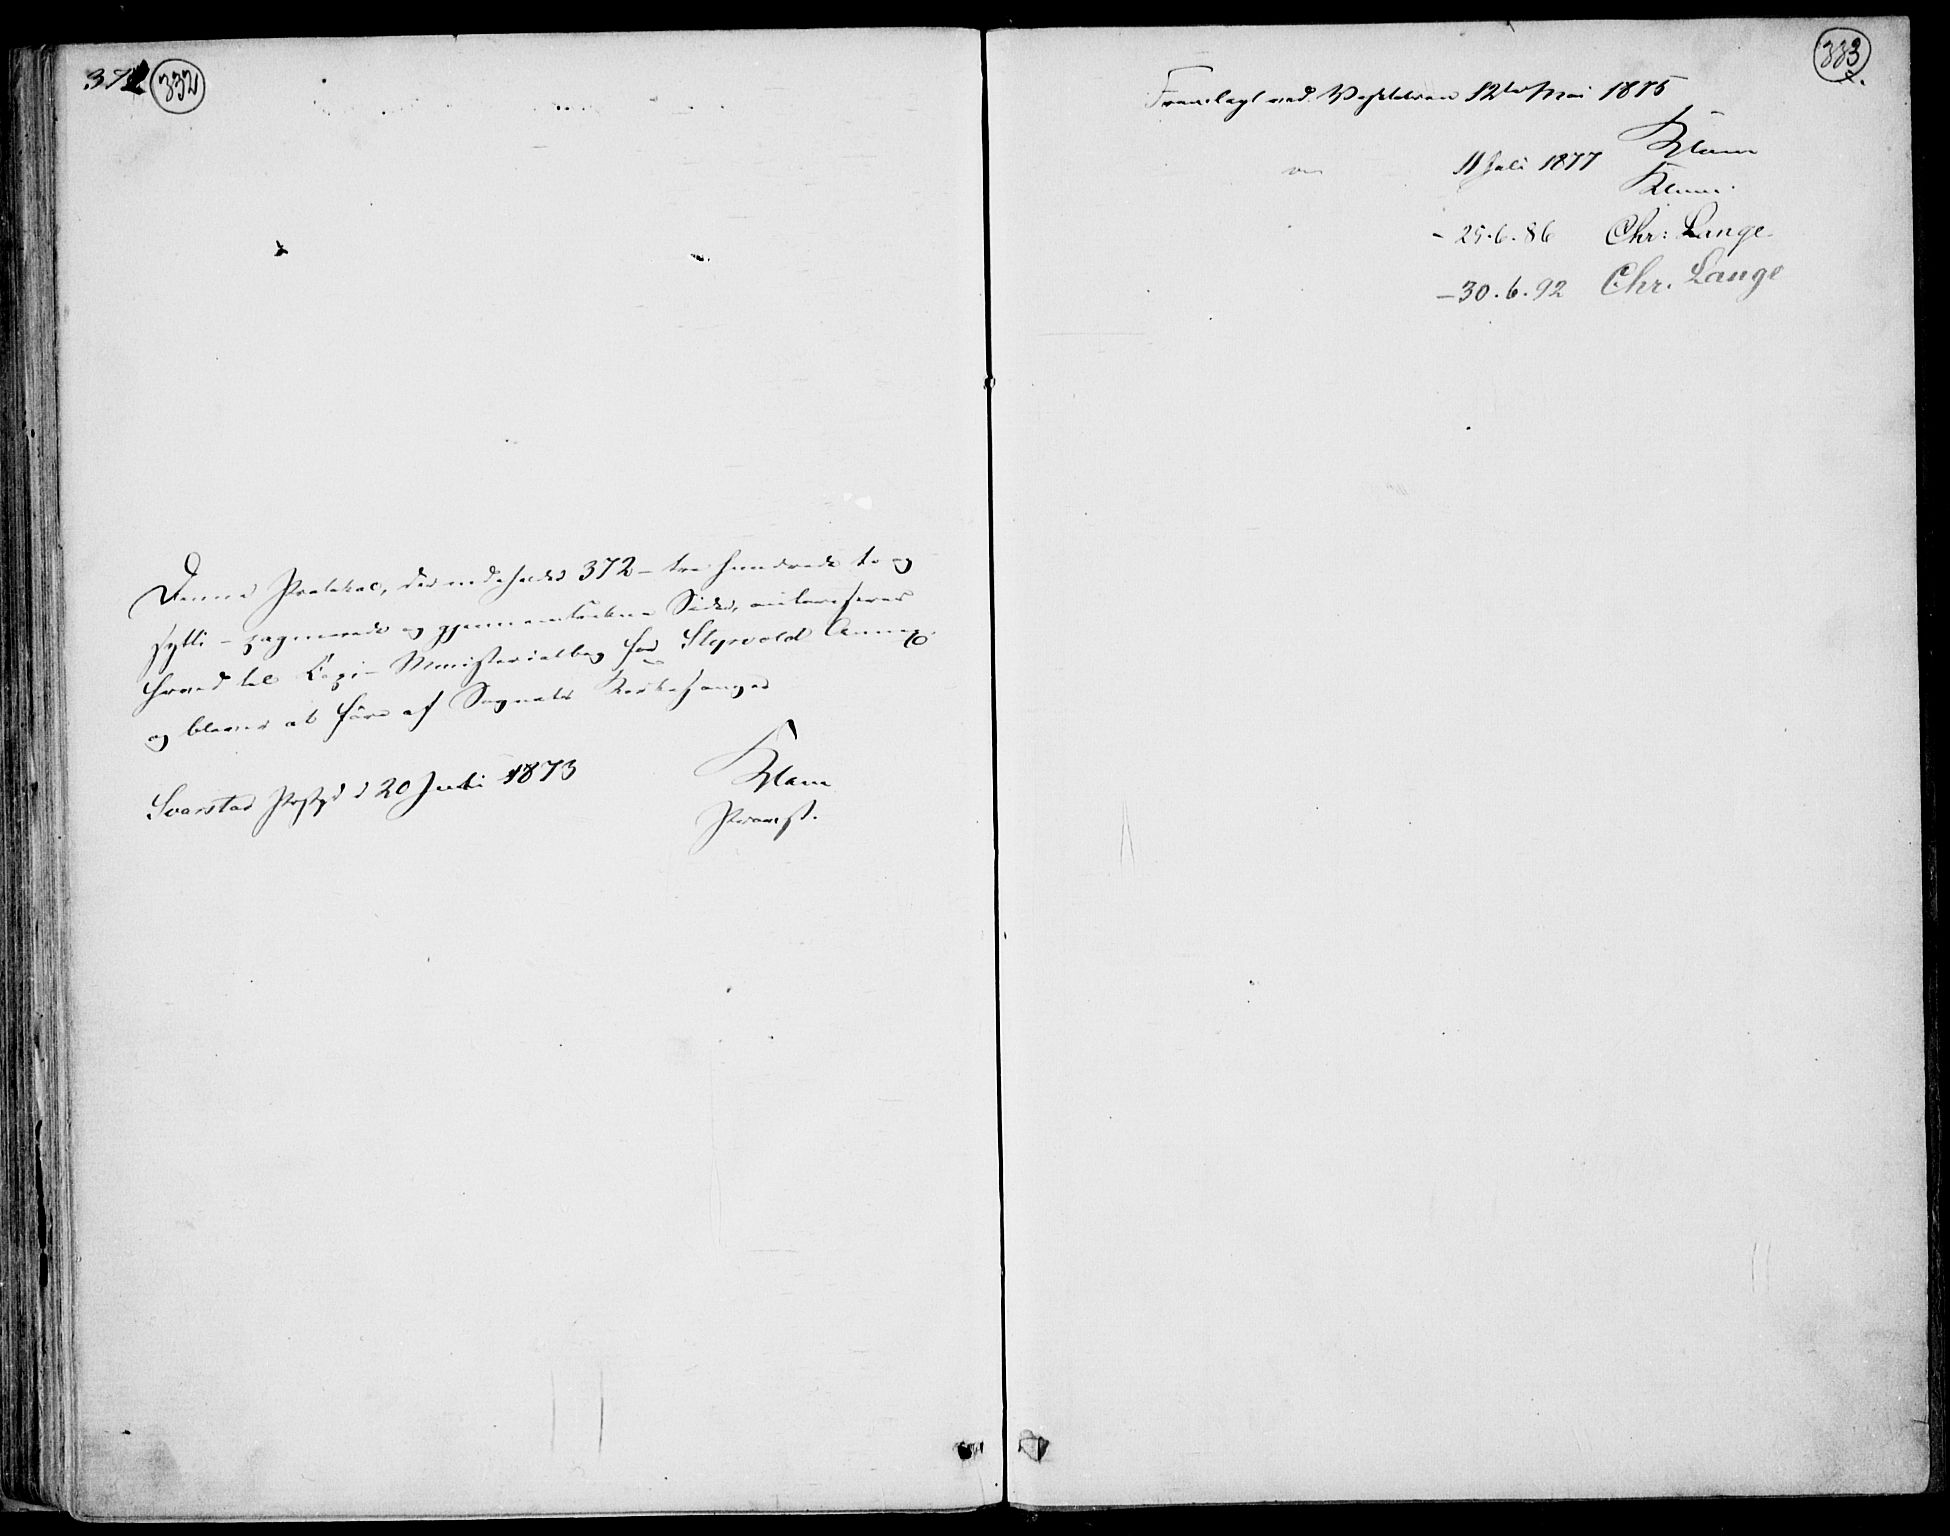 372 332
Denne Protokol, der indeholder 372 – tre hundrede to og
sytti – paginerede og gjennemtrukne Sider, autoriseres
herved til Kopi-Ministerialbog for Styrvold Annex
og bliver at føre af Sognets Kirkesanger
Svarstad Pstgd d 20 Juli 1873
Klem
Provst.
333
Fremlagt ved Visitatsen 12te Mai 1875
Klem
11 Juli 1877
Klem
- 25.6.86 Chr: Lange
- 30.6.92 Chr. Lange